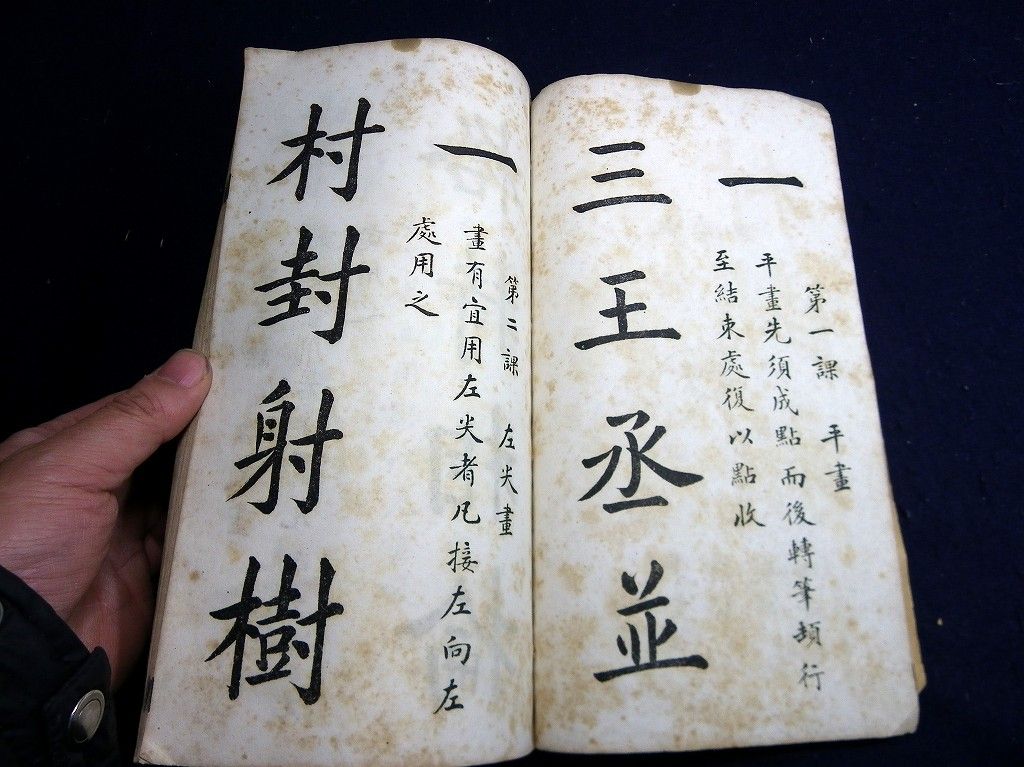 一
第一課 平畫
平畫先須成點而後轉筆頓行
至結束處復以點收
三王丞並
一
第二課 左尖畫
畫有宜用左尖者凡接左向左
處用之
村封射樹